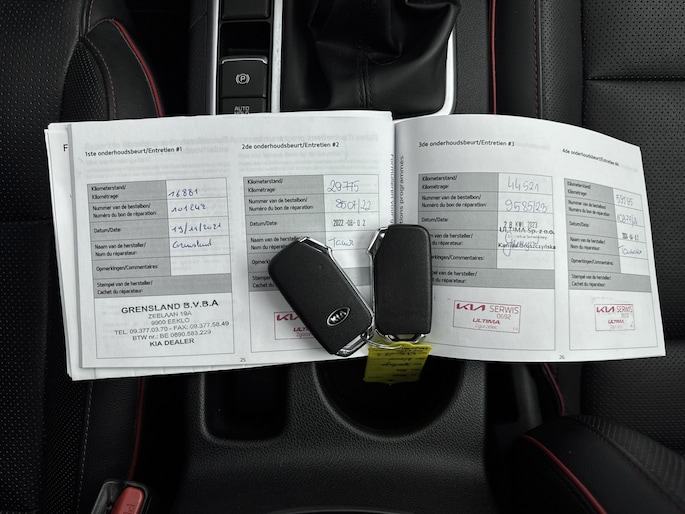 P
AUTO
HOLD
1ste onderhoudsbeurt/Entretien #1
Kilometerstand/
Kilométrage:
16881
Nummer van de bestelbon/
Numéro du bon de réparation:
Datum/Date:
19/11/2021
Naam van de hersteller/
Nom du réparateur:
Grensland
Opmerkingen/Commentaires:
Stempel van de hersteller/
Cachet du réparateur:
GRENSLAND B.V.B.A
ZEELAAN 19A
9900 EEKLO
TEL. 09.377.03.70 - FAX: 09.377.58.49
BTW nr.: BE 0890.583.229
KIA DEALER
2de onderhoudsbeurt/Entretien #2
Kilometerstand/
Kilométrage:
29775
Nummer van de bestelbon/
Numéro du bon de réparation:
Datum/Date:
Naam van de hersteller/
Nom du réparateur:
Opmerkingen/Commentaires:
Stempel van de hersteller/
Cachet du réparateur:
KIA
ULTIMA
25
KIA
3de onderhoudsbeurt/Entretien #3
Kilometerstand/
Kilométrage:
44521
Nummer van de bestelbon/
Numéro du bon de réparation:
Datum/Date:
28 KWI. 2023
ULTIMA Sp. z o.o.
Naam van de hersteller/
Nom du réparateur:
Opmerkingen/Commentaires:
Stempel van de hersteller/
Cachet du réparateur:
KIA SERWIS
ULTIMA
4de onderhoudsbeurt/Entretien #4
Kilometerstand/
Kilométrage:
Nummer van de bestelbon/
Numéro du bon de réparation:
Datum/Date:
Naam van de hersteller/
Nom du réparateur:
Opmerkingen/Commentaires:
Stempel van de hersteller/
Cachet du réparateur:
KIA SERWIS
ULTIMA
26